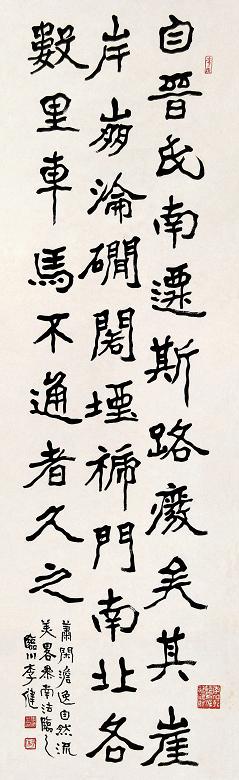 自晉氏南遷斯路廢矣其崖
岸崩淪磵閣堙褫門南北各
數里車馬不通者久之
蕭閒澹逸自然流
美畧參南法臨之
臨川李健